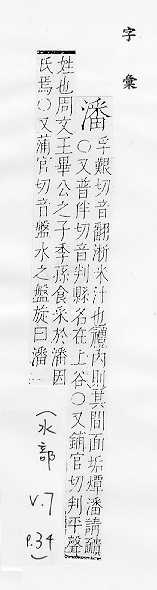 字彙
潘
孚艱切音翻淅米汁也禮內則其間面垢燂潘請靧
○又普伴切音判縣名在上谷○又鋪官切判平聲
姓也周文王畢公之子季孫食采於潘因
氏焉○又蒲官切音盤水之盤旋曰潘⋯
(水部
V.7
P.34)